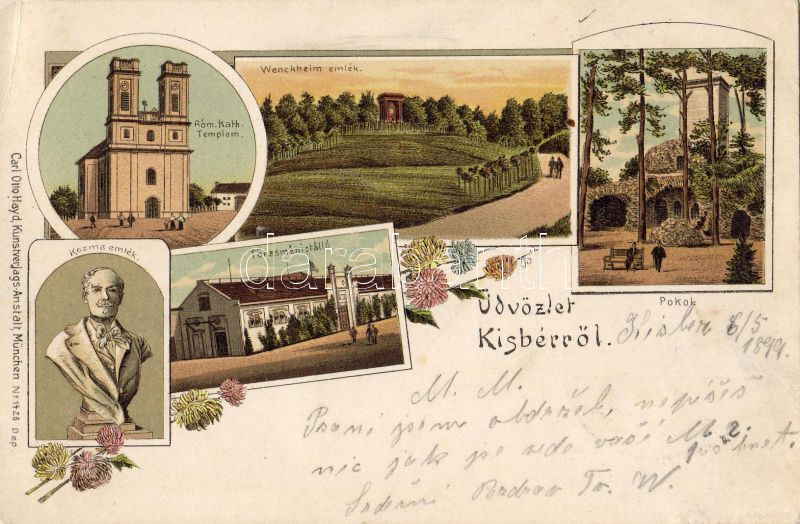 Róm. Kath.
Templom.
Wenckheim emlék.
Pokol.
Kozma emlék.
Törzsménistálló
Üdvözlet
Kisbérről.
Kisber 6/5
1899.
M. M.
Psaní jsem obdržel, nepíšeš
nic jak se vede vaší M.
Srdečný Pozdrav Tv. W.
Carl Otto Hayd, Kunstverlags-Anstalt, München No 1426 Dep
darabanth